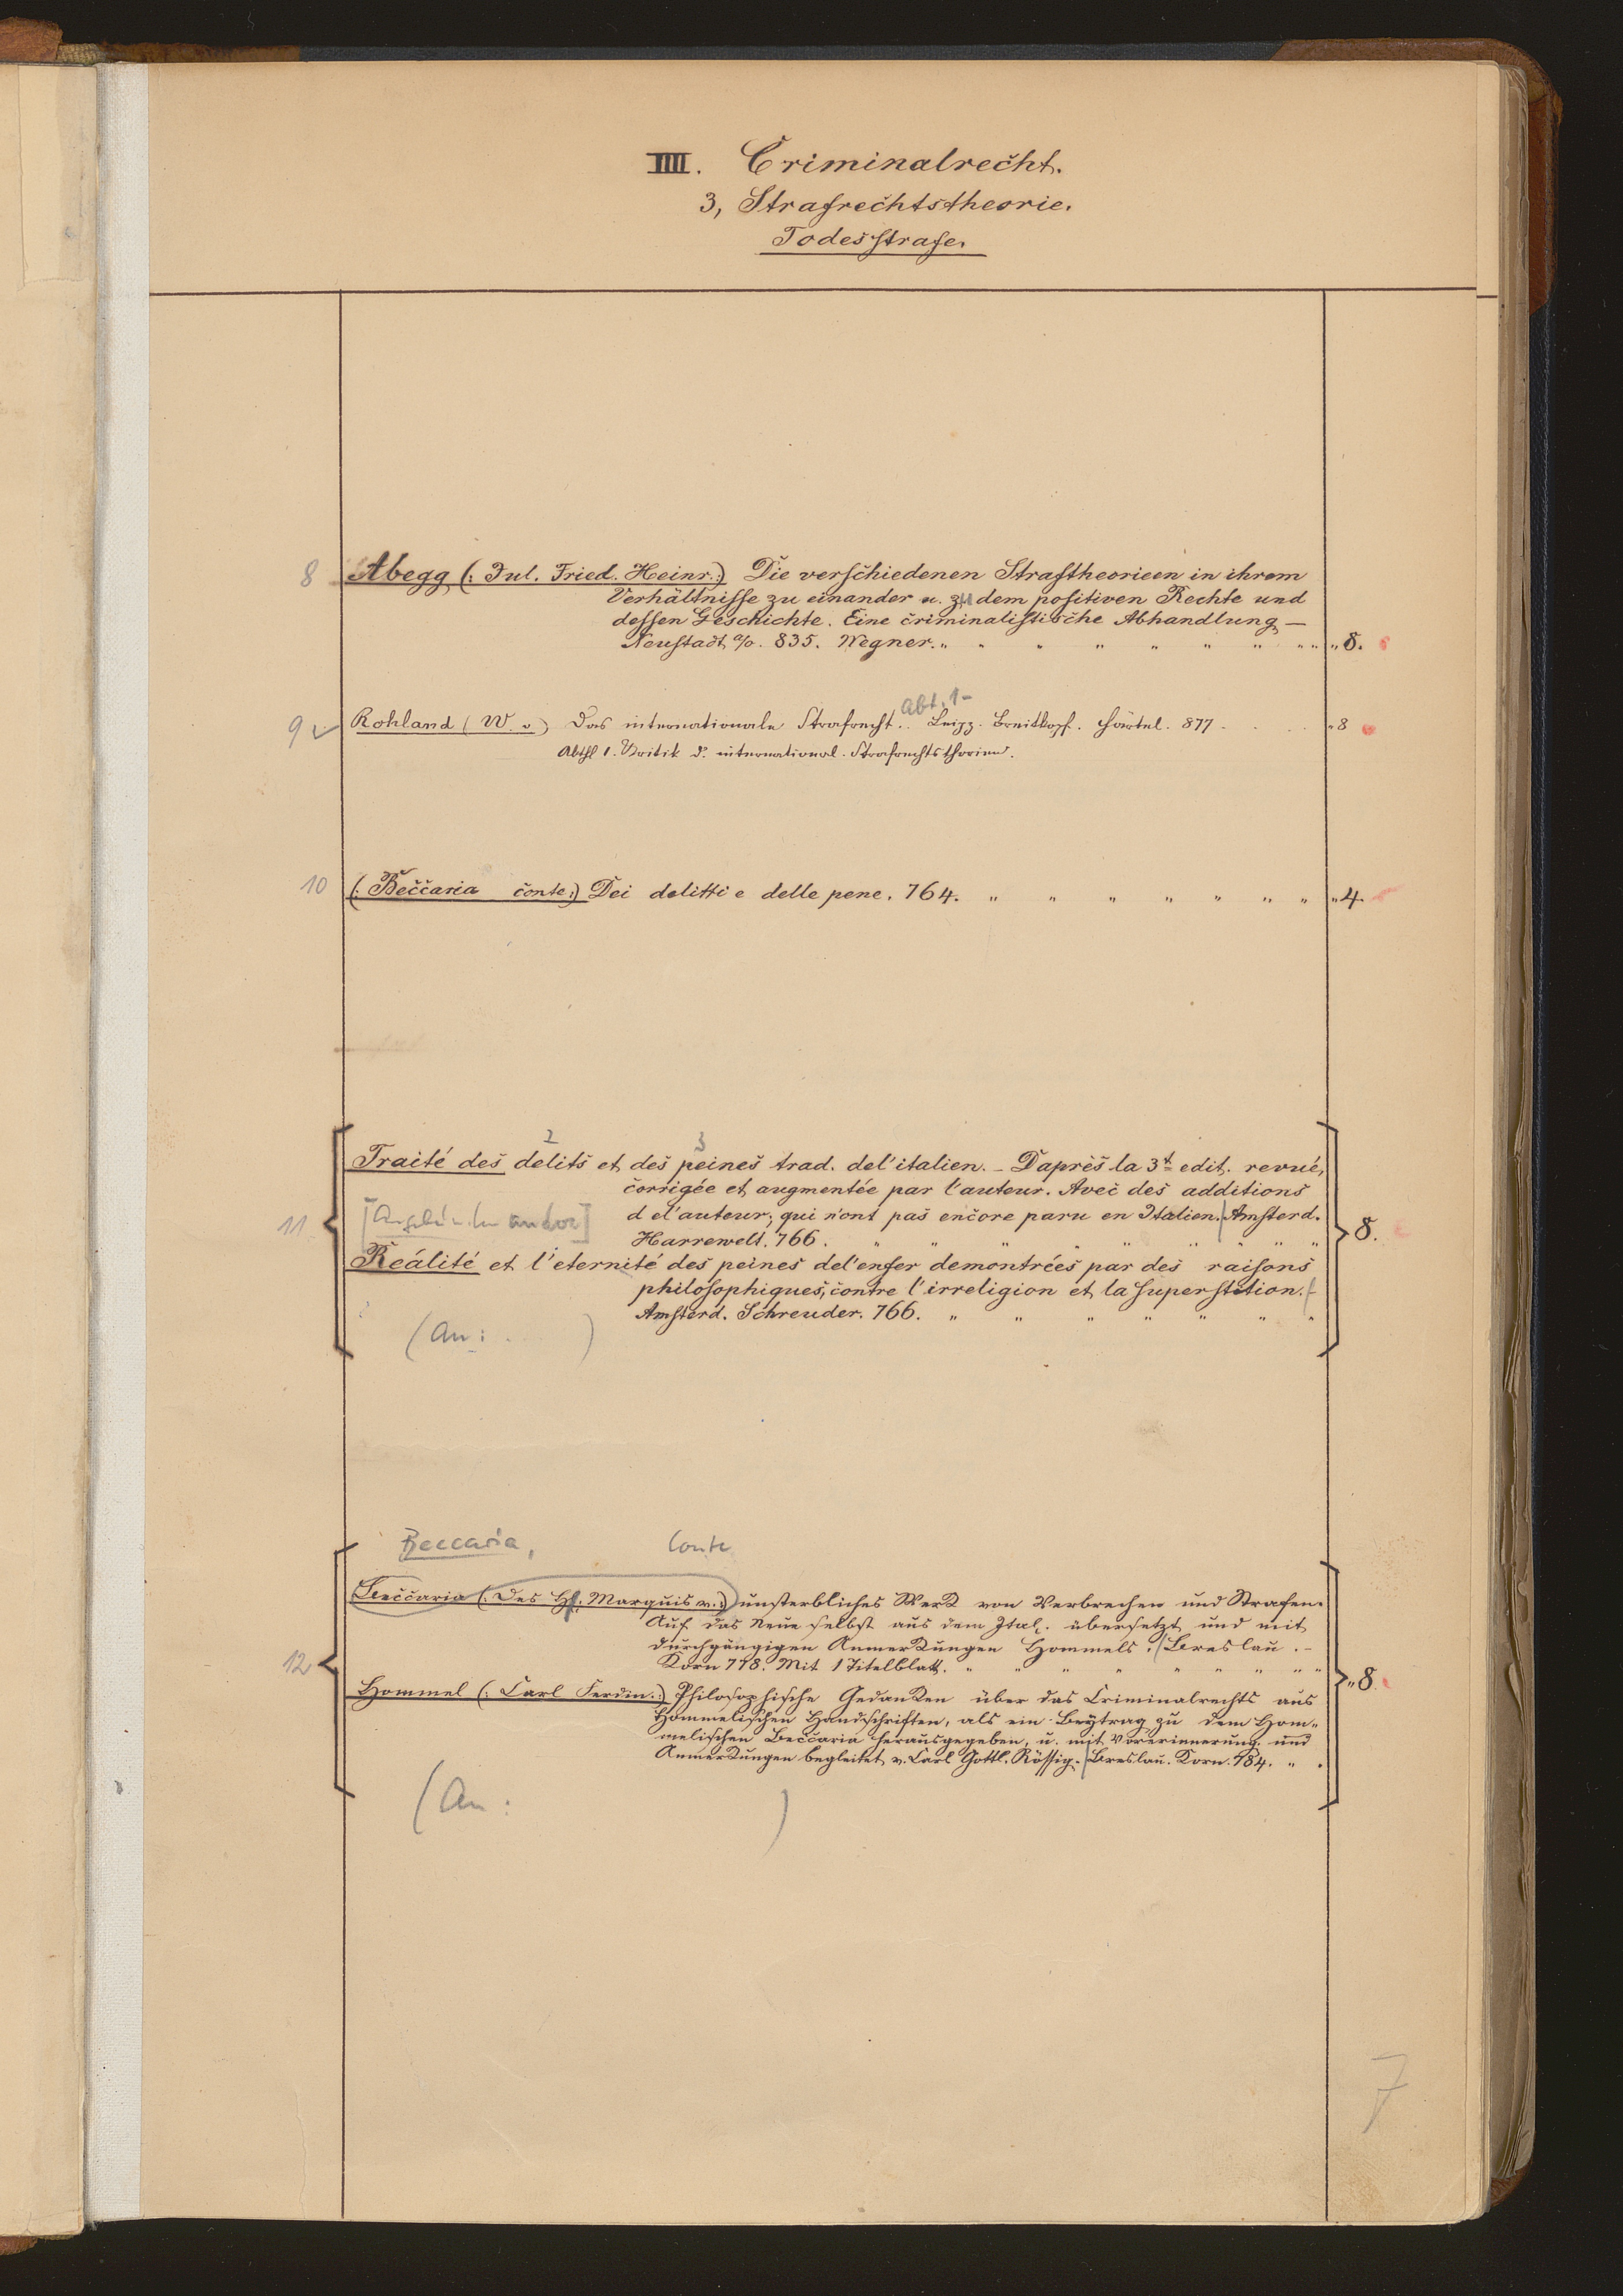 IIII. Criminalrecht.
3, Strafrechtstheorie.
Todesstrafe.
8 Abegg (: Jul. Fried. Heinr.:) Die verschiedenen Straftheorieen in ihrem
Verhältnisse zu einander u. zu dem positiven Rechte und
dessen Geschichte. Eine criminalistische Abhandlung —
Neustadt a/o. 835. Wegner. „ „ „ „ „ „ „ „ „ „ 8.
Abt. 1-
9 Rohland (W. v.) Das internationale Strafrecht. Leipz. Breitkopf. Härtel. 877 . . . . „ 8
Abthl 1. Kritik d. international. Strafrechtstheorien.
10 (: Beccaria conte:) Dei delitti e delle pene. 764. „ „ „ „ „ „ „ „ 4.
2 3
Traité des delits et des peines trad. del'italien. – Daprès la 3t edit. revué,
corrigée et augmentée par l'auteur. Avec des additions
11 d el'auteur; qui n'ont pas encore paru en Italien. Amsterd.
Harrewelt. 766. „ „ „ „ „ „ „ „ 8.
Reálité et l'eternité des peines del'enfer demontrées par des raisons
philosophiques, contre l'irreligion et la superstition.
Amsterd. Schreuder. 766. „ „ „ „ „ „ „
(An: . )
Beccaria, Conte
Beccaria (: Des H. Marquis v.:) unsterbliches Werk von Verbrechen und Strafen.
Auf das Neue selbst aus dem Ital. übersetzt und mit
durchgängigen Anmerkungen Hommels. Breslau. –
12 Korn 778. Mit 1 Titelblatt. „ „ „ „ „ „ „ „ „
Hommel (: Carl Ferdin.:) Philosophische Gedanken über das Criminalrechts aus „ 8.
Hommelischen Handschriften, als ein Beytrag zu dem Hom„
melischen Beccaria herausgegeben, u. mit Vorerinnerung und
Anmerkungen begleitet v. Carl Gottl. Rössig. Breslau. Korn. 784. „ .
(An: )
7